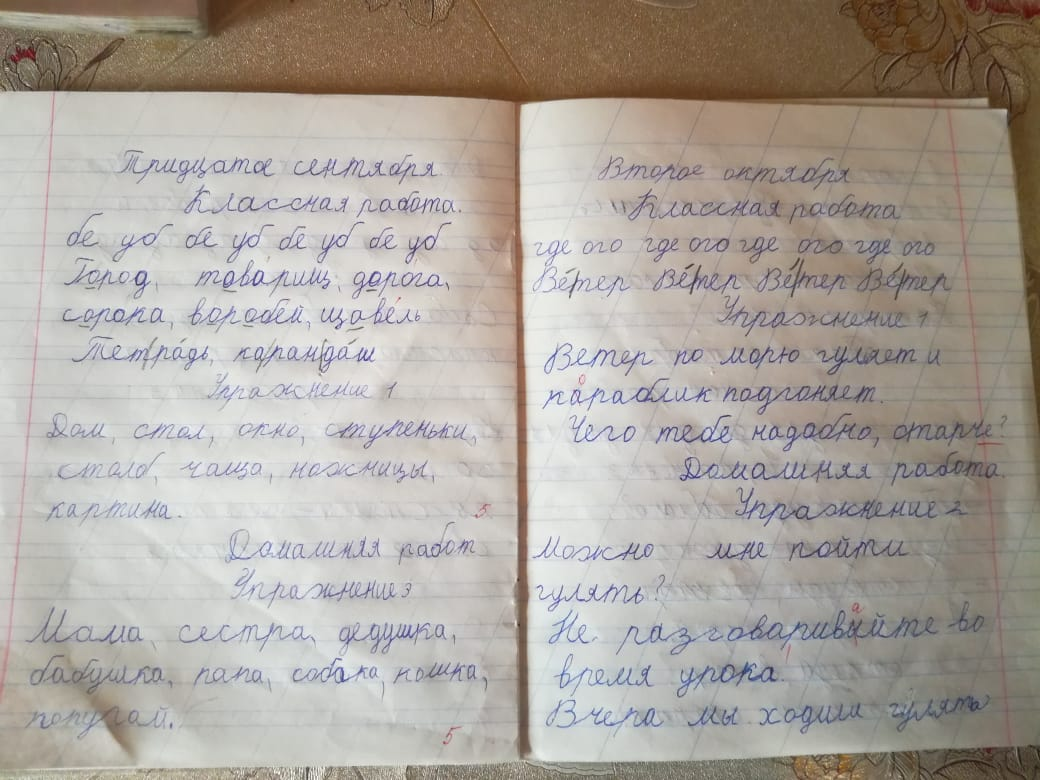 Тридцатое сентября.
Классная работа.
бе уб бе уб бе уб бе уб
Город, товарищ, дорога,
сорока, воробей, щавель
Тет/ра́дь, ка/ран/да́ш
Упражнение 1
Дом, стол, окно, ступеньки,
столб, чаща, ножницы,
картина.
5
Домашняя работ
Упражнение 3
Мама, сестра, дедушка,
бабушка, папа, собака, кошка,
попугай.
5
Второе октября
Классная работа
где ого где ого где ого где ого
Ве́/тер Ве́/тер Ве́/тер Ве́/тер
Упражнение 1
Ветер по морю гуляет и
о
караблик подгоняет.
Чего тебе надобно, старче?
Домашняя работа.
Упражнение 2
Можно мне пойти
гулять?
а
Не разговаривийте во
время урока!
Вчера мы ходили гулять